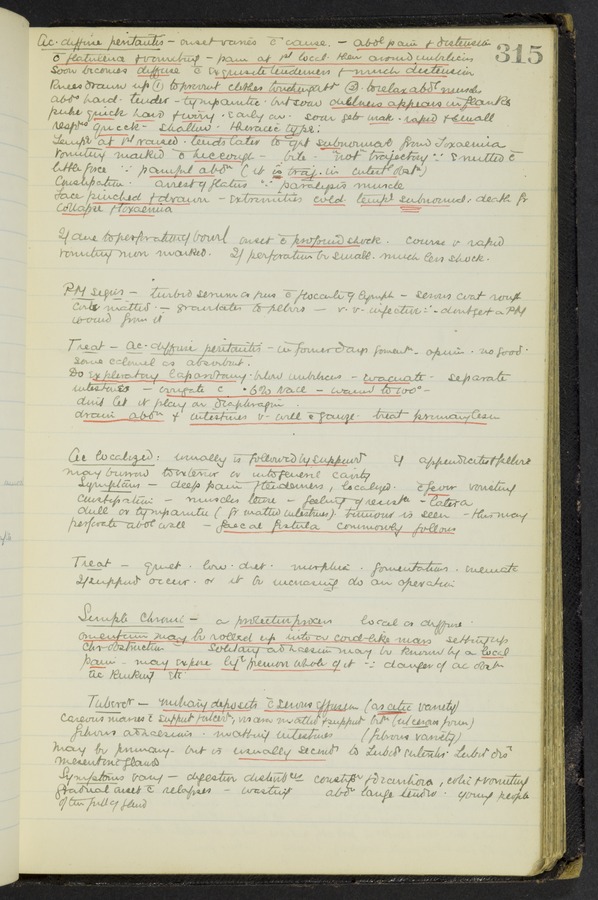 315
Ac. diffuse peritonitis – onset varies c̄ cause. – abdl pain & distension
c̄ flatulence & vomiting – pain at 1st local then around umbilicus
Soon becomes diffuse c̄ exquisite tenderness & much distension
Knees drawn up ① to prevent clothes touching abd ② to relax abdl muscles
abdn hard. tender – tympanitic. but soon dullness appears in flanks
pulse quick hard & wiry. early on. soon gets weak. rapid & small
respns quick – shallow. thoracic type.
Tempr at 1st raised. tends later to get subnormal from toxaemia
vomiting marked c̄ hiccough – bile. not
little force ∵ painful abdn (it is in intestl obstn)
Constipation. arrest of flatus ∵ paralysis muscle
face pinched & drawn – extremities cold tempr subnormal. death fr
collapse & toxaemia
If due to perforating bowel onset c̄ profound shock. course v. rapid
vomiting more marked. If perforation be small. much less shock.
PM signs – turbid serum or pus c̄ flocculi of lymph – serous coat rough
coils matted – gravitates to pelvis – v. v. infective ∴ dont get a PM
wound from it
Treat – ac. diffuse peritonitis – in former days foment. opium. no good.
some calomel as
Do exploratory laparotomy. below umbilicus – evacuate. separate
intestines – irrigate c̄ .6% NaCl – warm to 100°
dont let it play on diaphragm.
drain abdn & intestines v. well c̄ gauze. treat primary lesion
Ac localized. usually is followed by suppurn eg appendicitis
may burrow to exterior or into general cavity
Symptoms – deep pain & tenderness, localized. c̄ fever vomiting
constipation – muscles tense – feeling of resistce – later a
dull or tympanitic (fr matted intestines) tumour is seen – this may
perforate abdl wall – faecal fistula commonly follows
Treat – quiet. low diet. morphia. fomentation. enemata
If suppurn occurs. or it be increasing do an operation
Simple Chronic – a protective process local or diffuse.
omentum may be rolled up into a cord-like mass setting up
chr. obstruction Solitary adhesion may be known by a local
pain – may expose by tension whole of it ∴ danger of ac obstn
ac kinking etc.
Tubercr – miliary deposits c̄ serous effusion (ascitic variety)
Caseous masses c̄ suppurtn (ulcerous form)
fibrous adhesions. matting intestines (fibrous variety)
may be primary. but is usually second to tubcr
mesenteric glands
Symptoms vary – digestion disturbed constipn & diarrhoea, colic & vomiting
gradual onset c̄ relapses – wasting abdn large tender. young people
often full of fluid